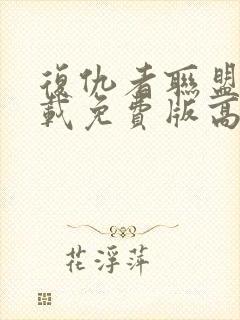 復仇者聯盟
載免費版高
花浮萍